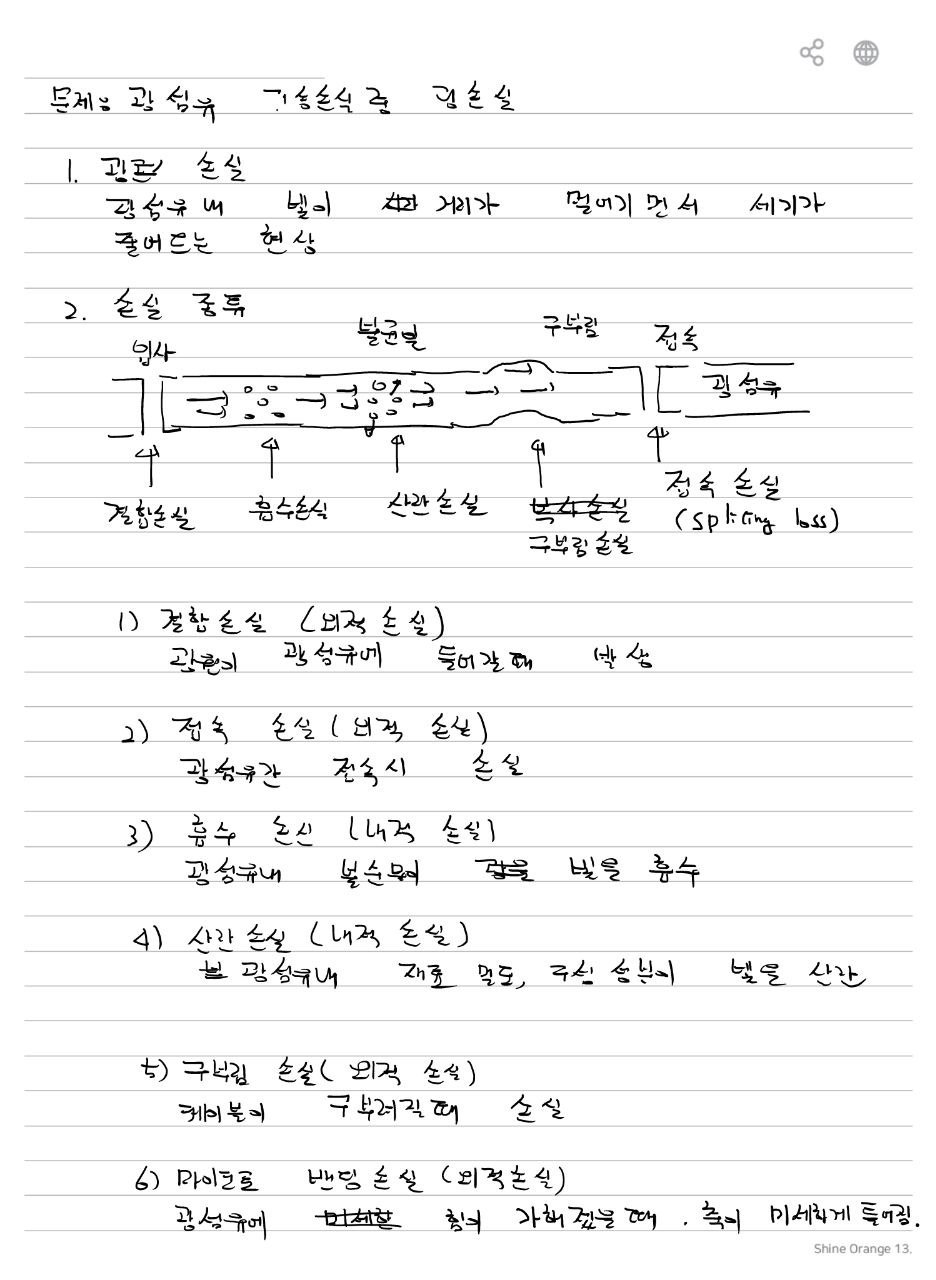 문제: 광섬유 기술손식 중 광손실
1. 광 손실
광섬유 내 빛이 거리가 멀어지면서 세기가
줄어드는 현상
2. 손실 종류
입사 불균일 구부림 접속
광섬유
결합손실 흡수손실 산란손실 구부림손실 접속 손실
(spliting loss)
1) 결합손실 (외적 손실)
광원이 광섬유에 들어갈때 발생
2) 접속 손실 (외적 손실)
광섬유간 접속시 손실
3) 흡수 손실 (내적 손실)
광섬유내 불순물이 빛을 흡수
4) 산란손실 (내적 손실)
광섬유내 재료 밀도, 구성 성분이 빛을 산란
5) 구부림 손실 (외적 손실)
케이블이 구부러질때 손실
6) 마이크로 밴딩손실 (외적손실)
광섬유에 힘이 가해졌을때. 축이 미세하게 틀어짐.
Shine Orange 13.